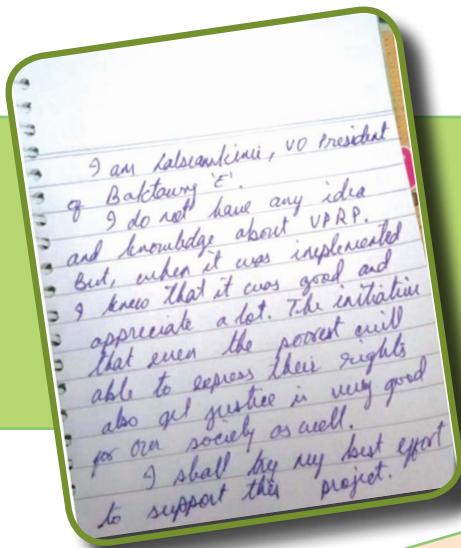 I am Lalsiamkimi, VO President
of Baktawng 'E'.
I do not have any idea
and knowledge about VPRP.
But, when it was implemented
I knew that it was good and
appreciate a lot. The initiative
that even the poorest will
able to express their rights
also get justice is very good
for our society as well.
I shall try my best effort
to support this project.